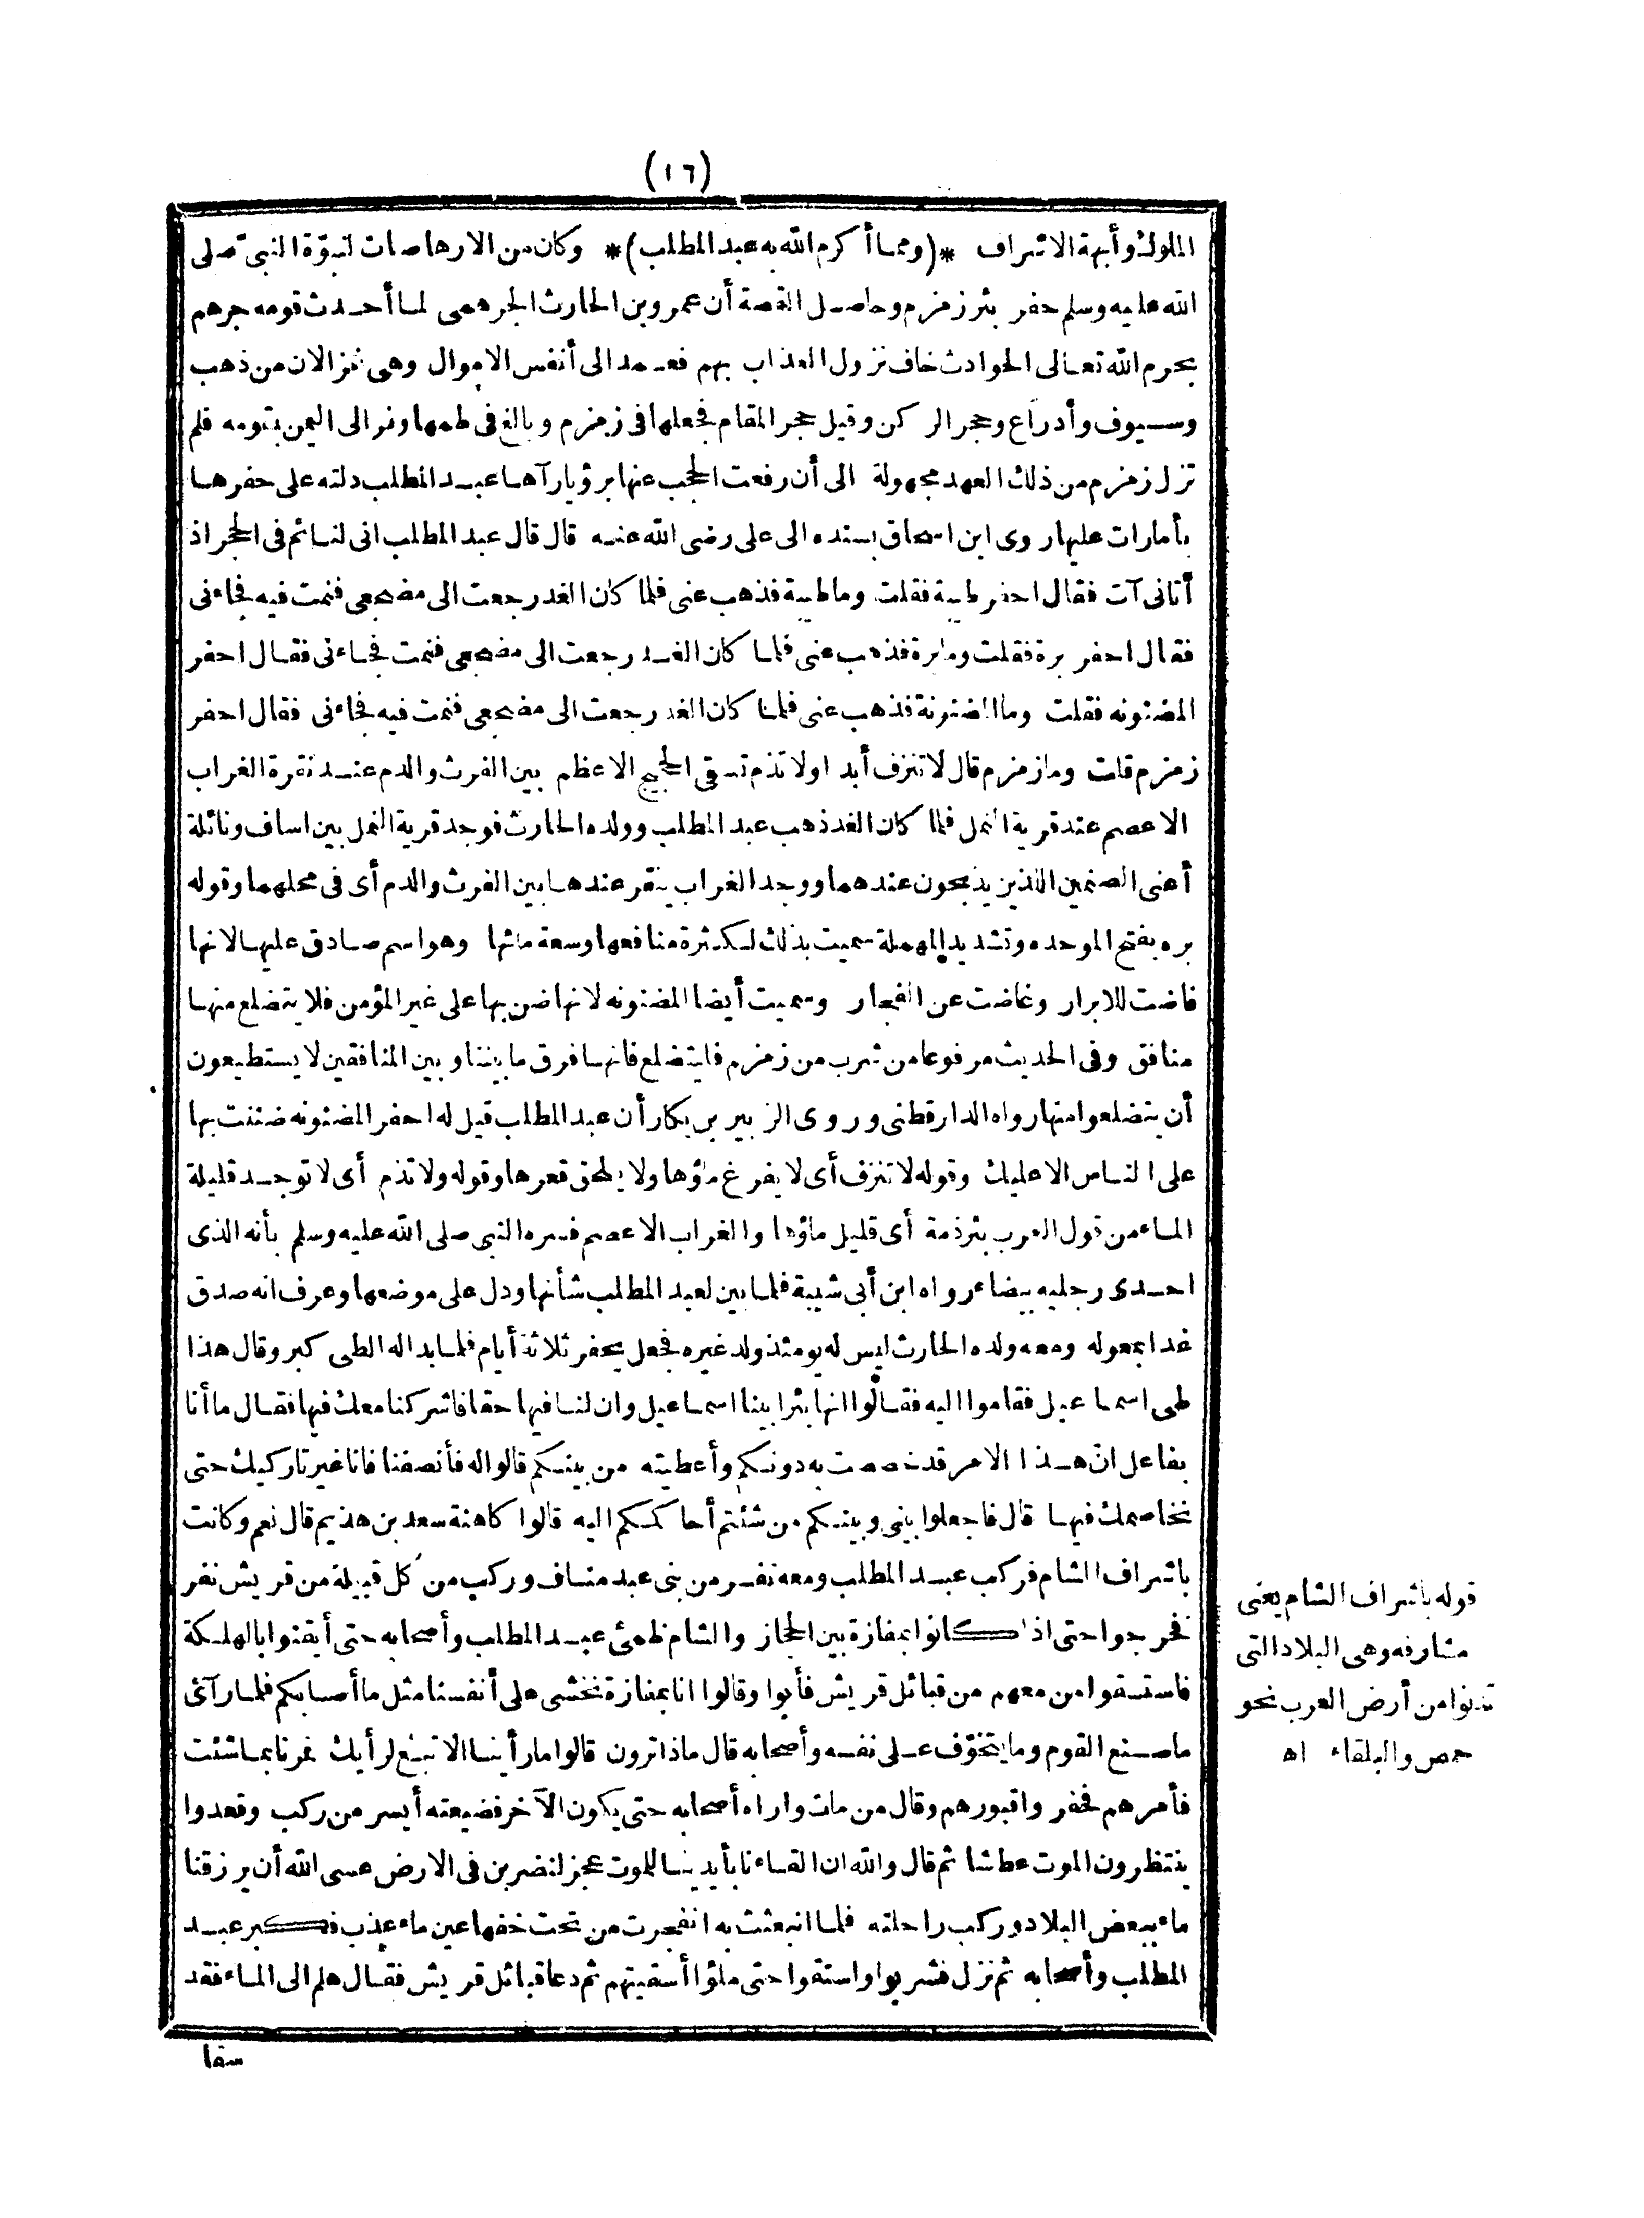 (١٦)
الملوك وأبهة الاشراف *(ومما أكرم الله به عبد المطلب)* وكان من الارهاصات لنبوّة النبيّ صلى
الله عليه وسلم حفر بئر زمزم وحاصل القصة أن عمرو بن الحارث الجرهمى لما أحدث قومه جرهم
بحرم الله تعالى الحوادث خاف نزول العذاب بهم فعمد الى أنفس الاموال وهى غزالان من ذهب
وسيوف وأدراع وحجر الركن وقيل حجر المقام فجعلها فى زمزم وبالغ فى طمها وفر الى اليمن بقومه فلم
تزل زمزم من ذلك العهد مجهولة الى أن رفعت الحجب عنها برؤيا رآها عبد المطلب دلته على حفرها
بأمارات عليها روى ابن اسحاق بسنده الى على رضى الله عنه قال قال عبد المطلب انى لنائم فى الحجر اذ
أتانى آت فقال احفر طيبة فقلت وما طيبة فذهب عنى فلما كان الغد رجعت الى مضجعى فنمت فيه فجاءنى
فقال احفر برة فقلت وما برة فذهب عنى فلما كان الغد رجعت الى مضجعى فنمت فجاءنى فقال احفر
المضنونه فقلت وما المضنونة فذهب عنى فلما كان الغد رجعت الى مضجعى فنمت فيه فجاءنى فقال احفر
زمزم قلت وما زمزم قال لا تنزف أبدا ولا تذم تسقى الحجيج الاعظم بين الفرث والدم عند نقرة الغراب
الاعصم عند قرية النمل فلما كان الغد ذهب عبد المطلب وولده الحارث فوجد قرية النمل بين اساف ونائلة
أعنى الصنمين اللذين يذبحون عندهما ووجد الغراب ينقر عندها بين الفرث والدم أى فى محلهما وقوله
بره بفتح الموحده وتشديد المهملة سميت بذلك لكثرة منافعها وسعة مائها وهو اسم صادق عليها لانها
فاضت للابرار وغاضت عن الفجار وسميت أيضا المضنونه لانها ضن بها على غير المؤمن فلا يتضلع منها
منافق وفى الحديث مرفوعا من شرب من زمزم فليتضلع فانها فرق ما بيننا وبين المنافقين لا يستطيعون
أن يتضلعوا منها رواه الدارقطنى وروى الزبير بن بكار أن عبد المطلب قيل له احفر المضنونه ضننت بها
على الناس الا عليك وقوله لا تنزف أى لا يفرغ ماؤها ولا يلحق قعرها وقوله ولا تذم أى لا توجد قليلة
الماء من قول العرب بئر ذمة أى قليل ماؤها والغراب الاعصم فسره النبى صلى الله عليه وسلم بأنه الذى
احدى رجليه بيضاء رواه ابن أبى شيبة فلما بين لعبد المطلب شأنها ودل على موضعها وعرف انه صدق
غدا بمعوله ومعه ولده الحارث ليس له يومئذ ولد غيره فجعل يحفر ثلاثة أيام فلما بدا له الطى كبر وقال هذا
طى اسماعيل فقاموا اليه فقالوا انها بئر أبينا اسماعيل وان لنا فيها حقا فاشركنا معك فيها فقال ما أنا
بفاعل انّ هذا الامر قد خصصت به دونكم وأعطيته من بينكم قالوا له فأنصفنا فانا غير تاركيك حتى
نخاصمك فيها قال فاجعلوا بينى وبينكم من شئتم أحاكمكم اليه قالوا كاهنة سعد بن هذيم قال نعم وكانت
باشراف الشام فركب عبد المطلب ومعه نفر من بنى عبد مناف وركب من كل قبيلة من قريش نفر
فخرجوا حتى اذا كانوا بمفازة بين الحجاز والشام ظمئ عبد المطلب وأصحابه حتى أيقنوا بالهلكة
فاستسقوا من معهم من قبائل قريش فأبوا وقالوا انا بمفازة نخشى على أنفسنا مثل ما أصابكم فلما رآى
ما صنع القوم وما يتخوّف على نفسه وأصحابه قال ماذا ترون قالوا ما رأينا الا تبع لرأيك فمرنا بما شئت
فأمرهم فحفروا قبورهم وقال من مات واراه أصحابه حتى يكون الآخر فضيعته أيسر من ركب وقعدوا
ينتظرون الموت عطاشا ثم قال والله ان القاءنا بأيدينا للموت عجز لنضربن فى الارض عسى الله أن يرزقنا
ماء ببعض البلاد وركب راحلته فلما انبعثت به انفجرت من تحت خفها عين ماء عذب فكبر عبد
المطلب وأصحابه ثم نزل فشربوا واستقوا حتى ملؤا أسقيتهم ثم دعا قبائل قريش فقال هلم الى الماء فقد
سقا
قوله باشراف الشام يعنى
مشارفه وهى البلاد التى
تدنوا من أرض العرب نحو
حمص والبلقاء اه